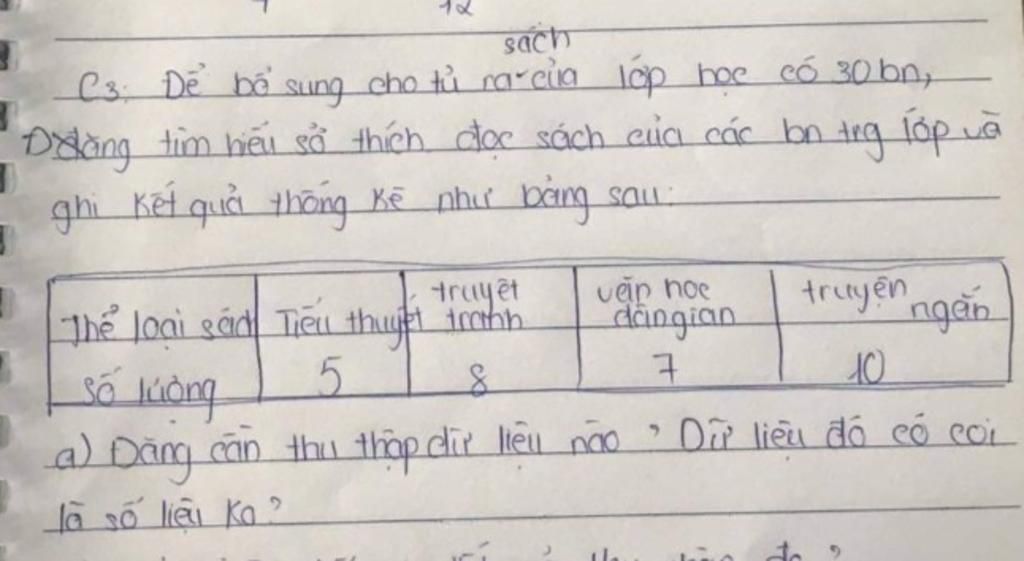 12
sách
C3: Để bổ sung cho tủ của lớp học có 30 bn,
Đăng tìm hiểu sở thích đọc sách của các bn trg lớp và
ghi kết quả thống kê như bảng sau:
Thể loại sách Tiểu thuyết truyệt tranh văn học dângian truyện ngắn
số lượng 5 8 7 10
a) Đăng cần thu thập dữ liệu nào? Dữ liệu đó có coi
là số liệu ko?